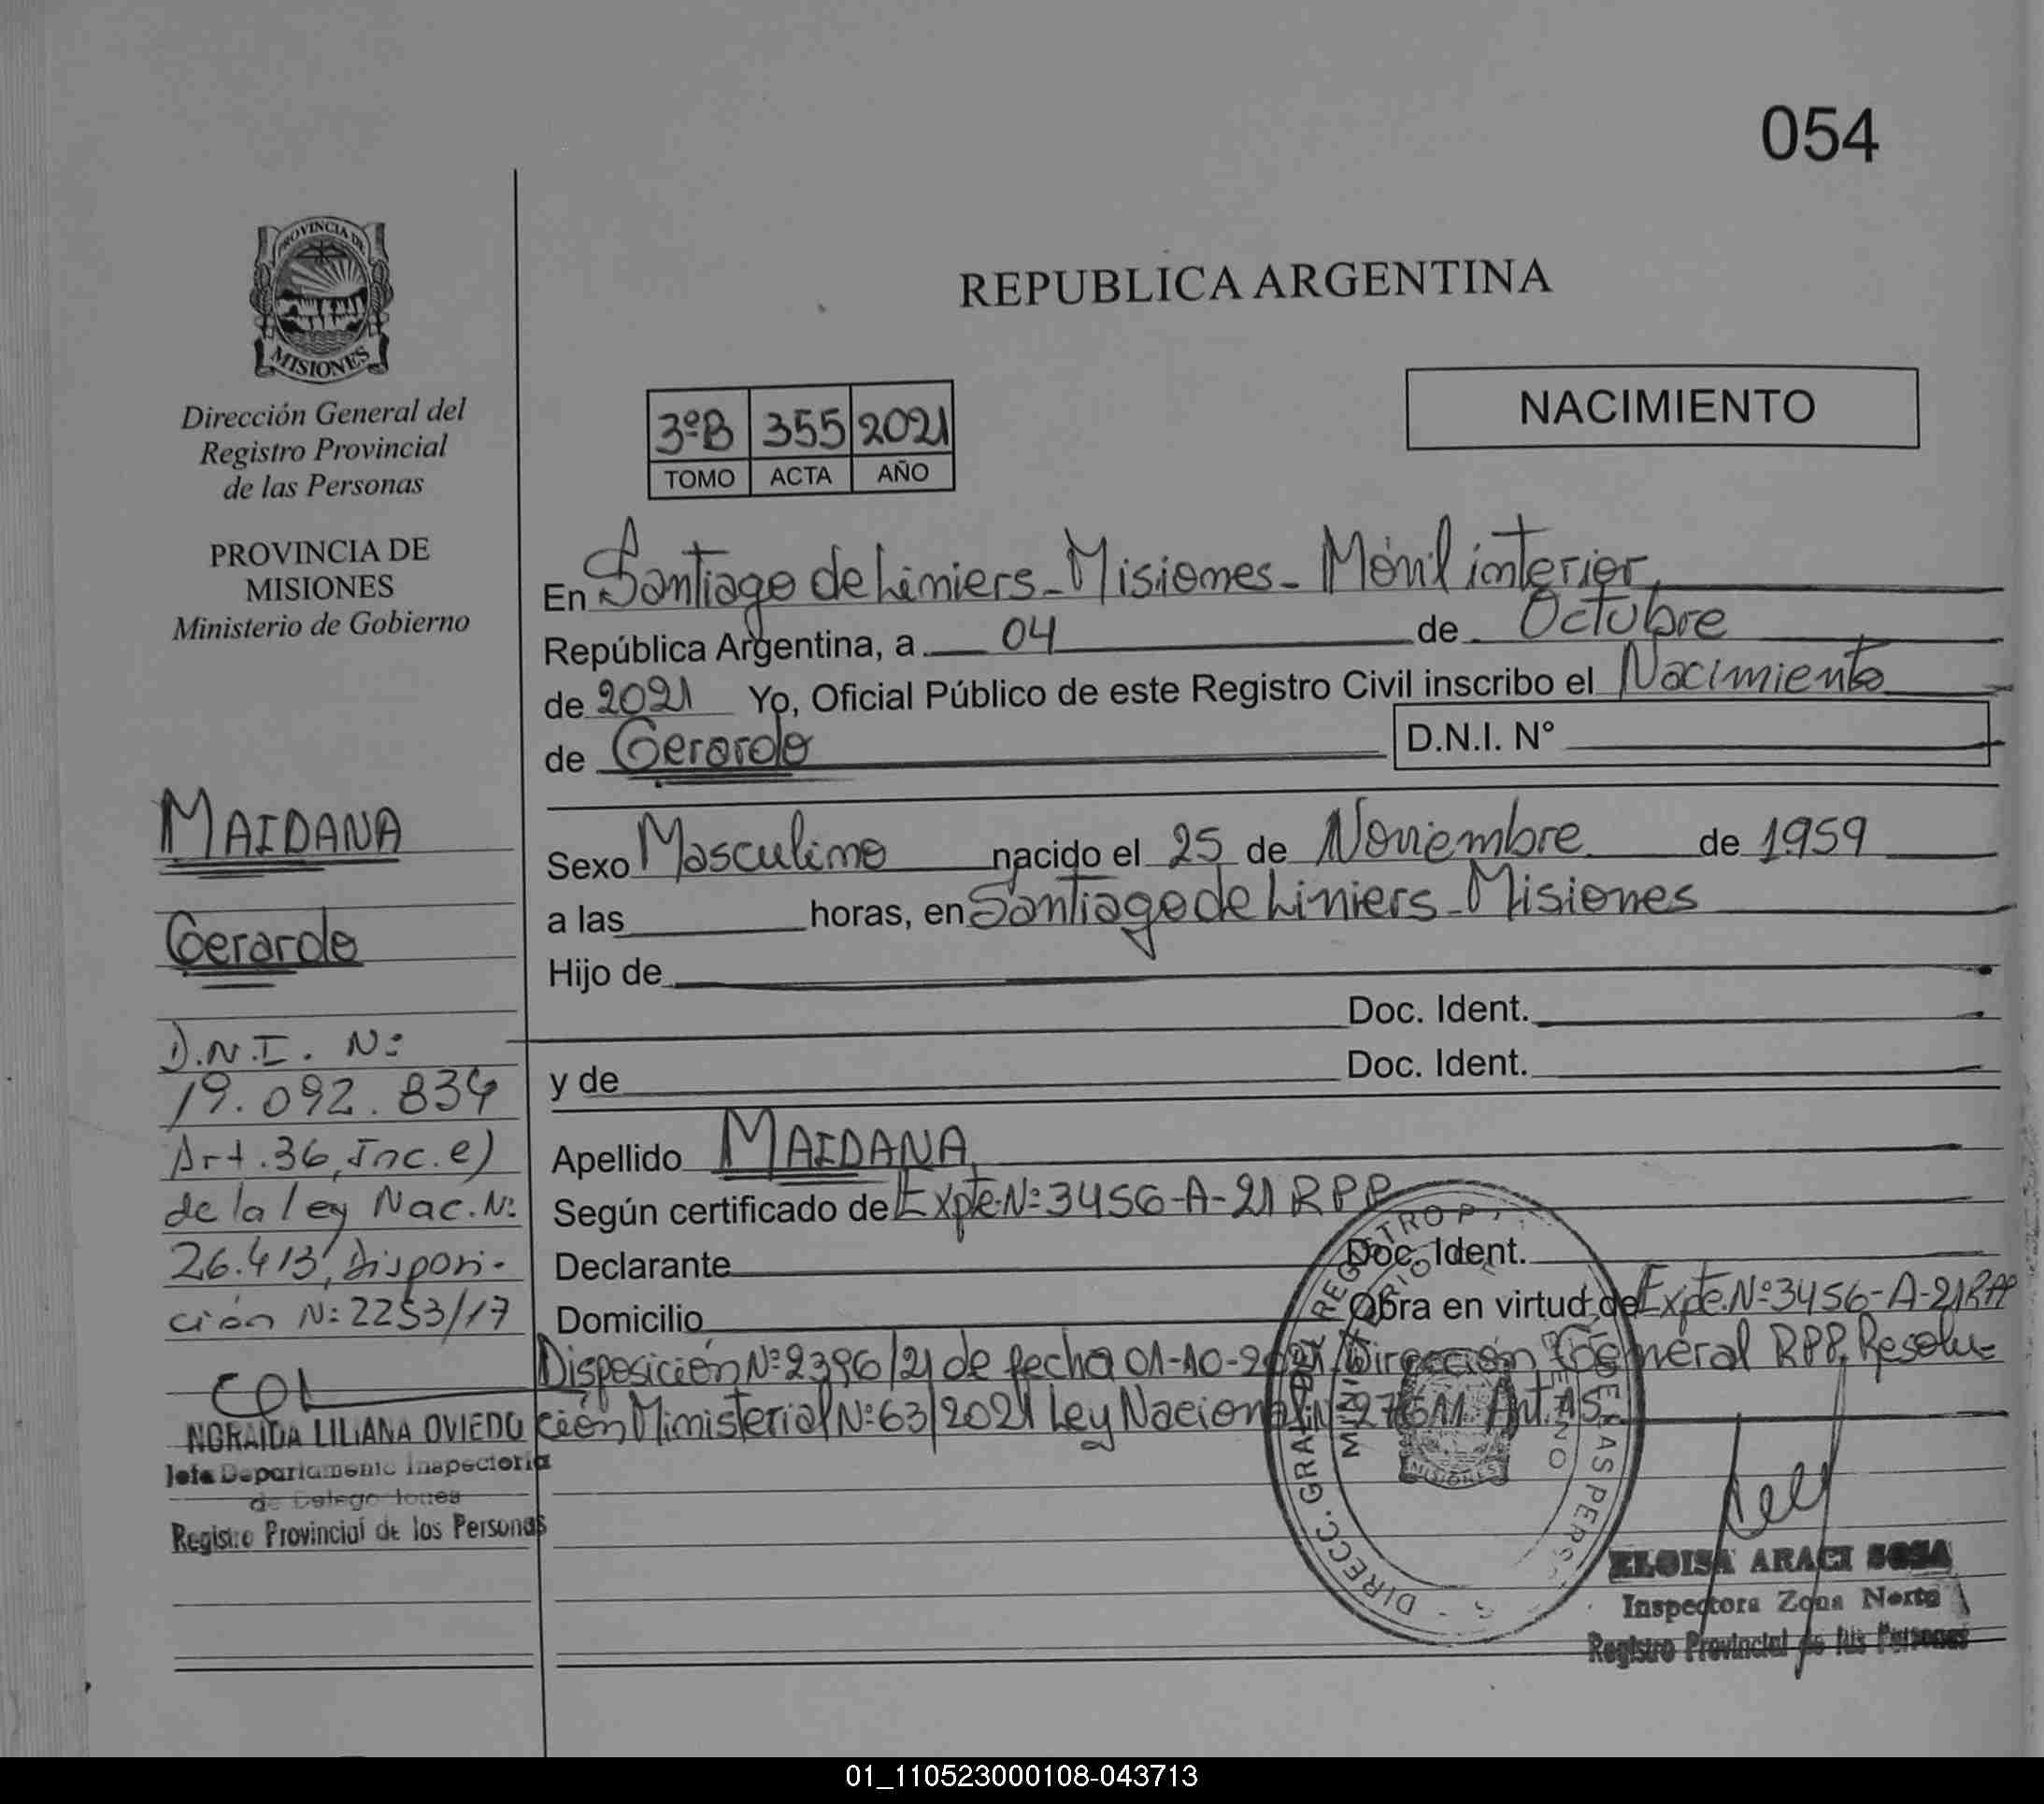 054
PROVINCIA DE
MISIONES
Dirección General del
Registro Provincial
de las Personas
PROVINCIA DE
MISIONES
Ministerio de Gobierno
MAIDANA
Gerardo
D.N.I. Nº
19.092.834
Art.36, Inc.e)
de la ley Nac.Nº
26.413, Disposi-
ción Nº 2253/17
NORAIDA LILIANA OVIEDO
Jefa Departamento Inspectoria
de Delegaciones
Registro Provincial de las Personas
REPUBLICA ARGENTINA
NACIMIENTO
3ºB 355 2021
TOMO ACTA AÑO
En Santiago de Liniers - Misiones - Móvil interior,
República Argentina, a 04 de Octubre
de 2021 Yo, Oficial Público de este Registro Civil inscribo el Nacimiento
de Gerardo D.N.I. N°
Sexo Masculino nacido el 25 de Noviembre de 1959
a las horas, en Santiago de Liniers - Misiones
Hijo de
Doc. Ident.
y de Doc. Ident.
Apellido MAIDANA
Según certificado de Expte.Nº 3456-A-21 RPP
Declarante Doc. Ident.
Domicilio Obra en virtud de Expte.Nº 3456-A-21 RPP
Disposición Nº 2396/21 de fecha 01-10-2021 Dirección General RPP, Resolu-
ción Ministerial Nº 63/2021 Ley Nacional Nº 27611 Art.
ELOISA ARACI SOSA
Inspectora Zona Norte
Registro Provincial de las Personas
01_110523000108-043713